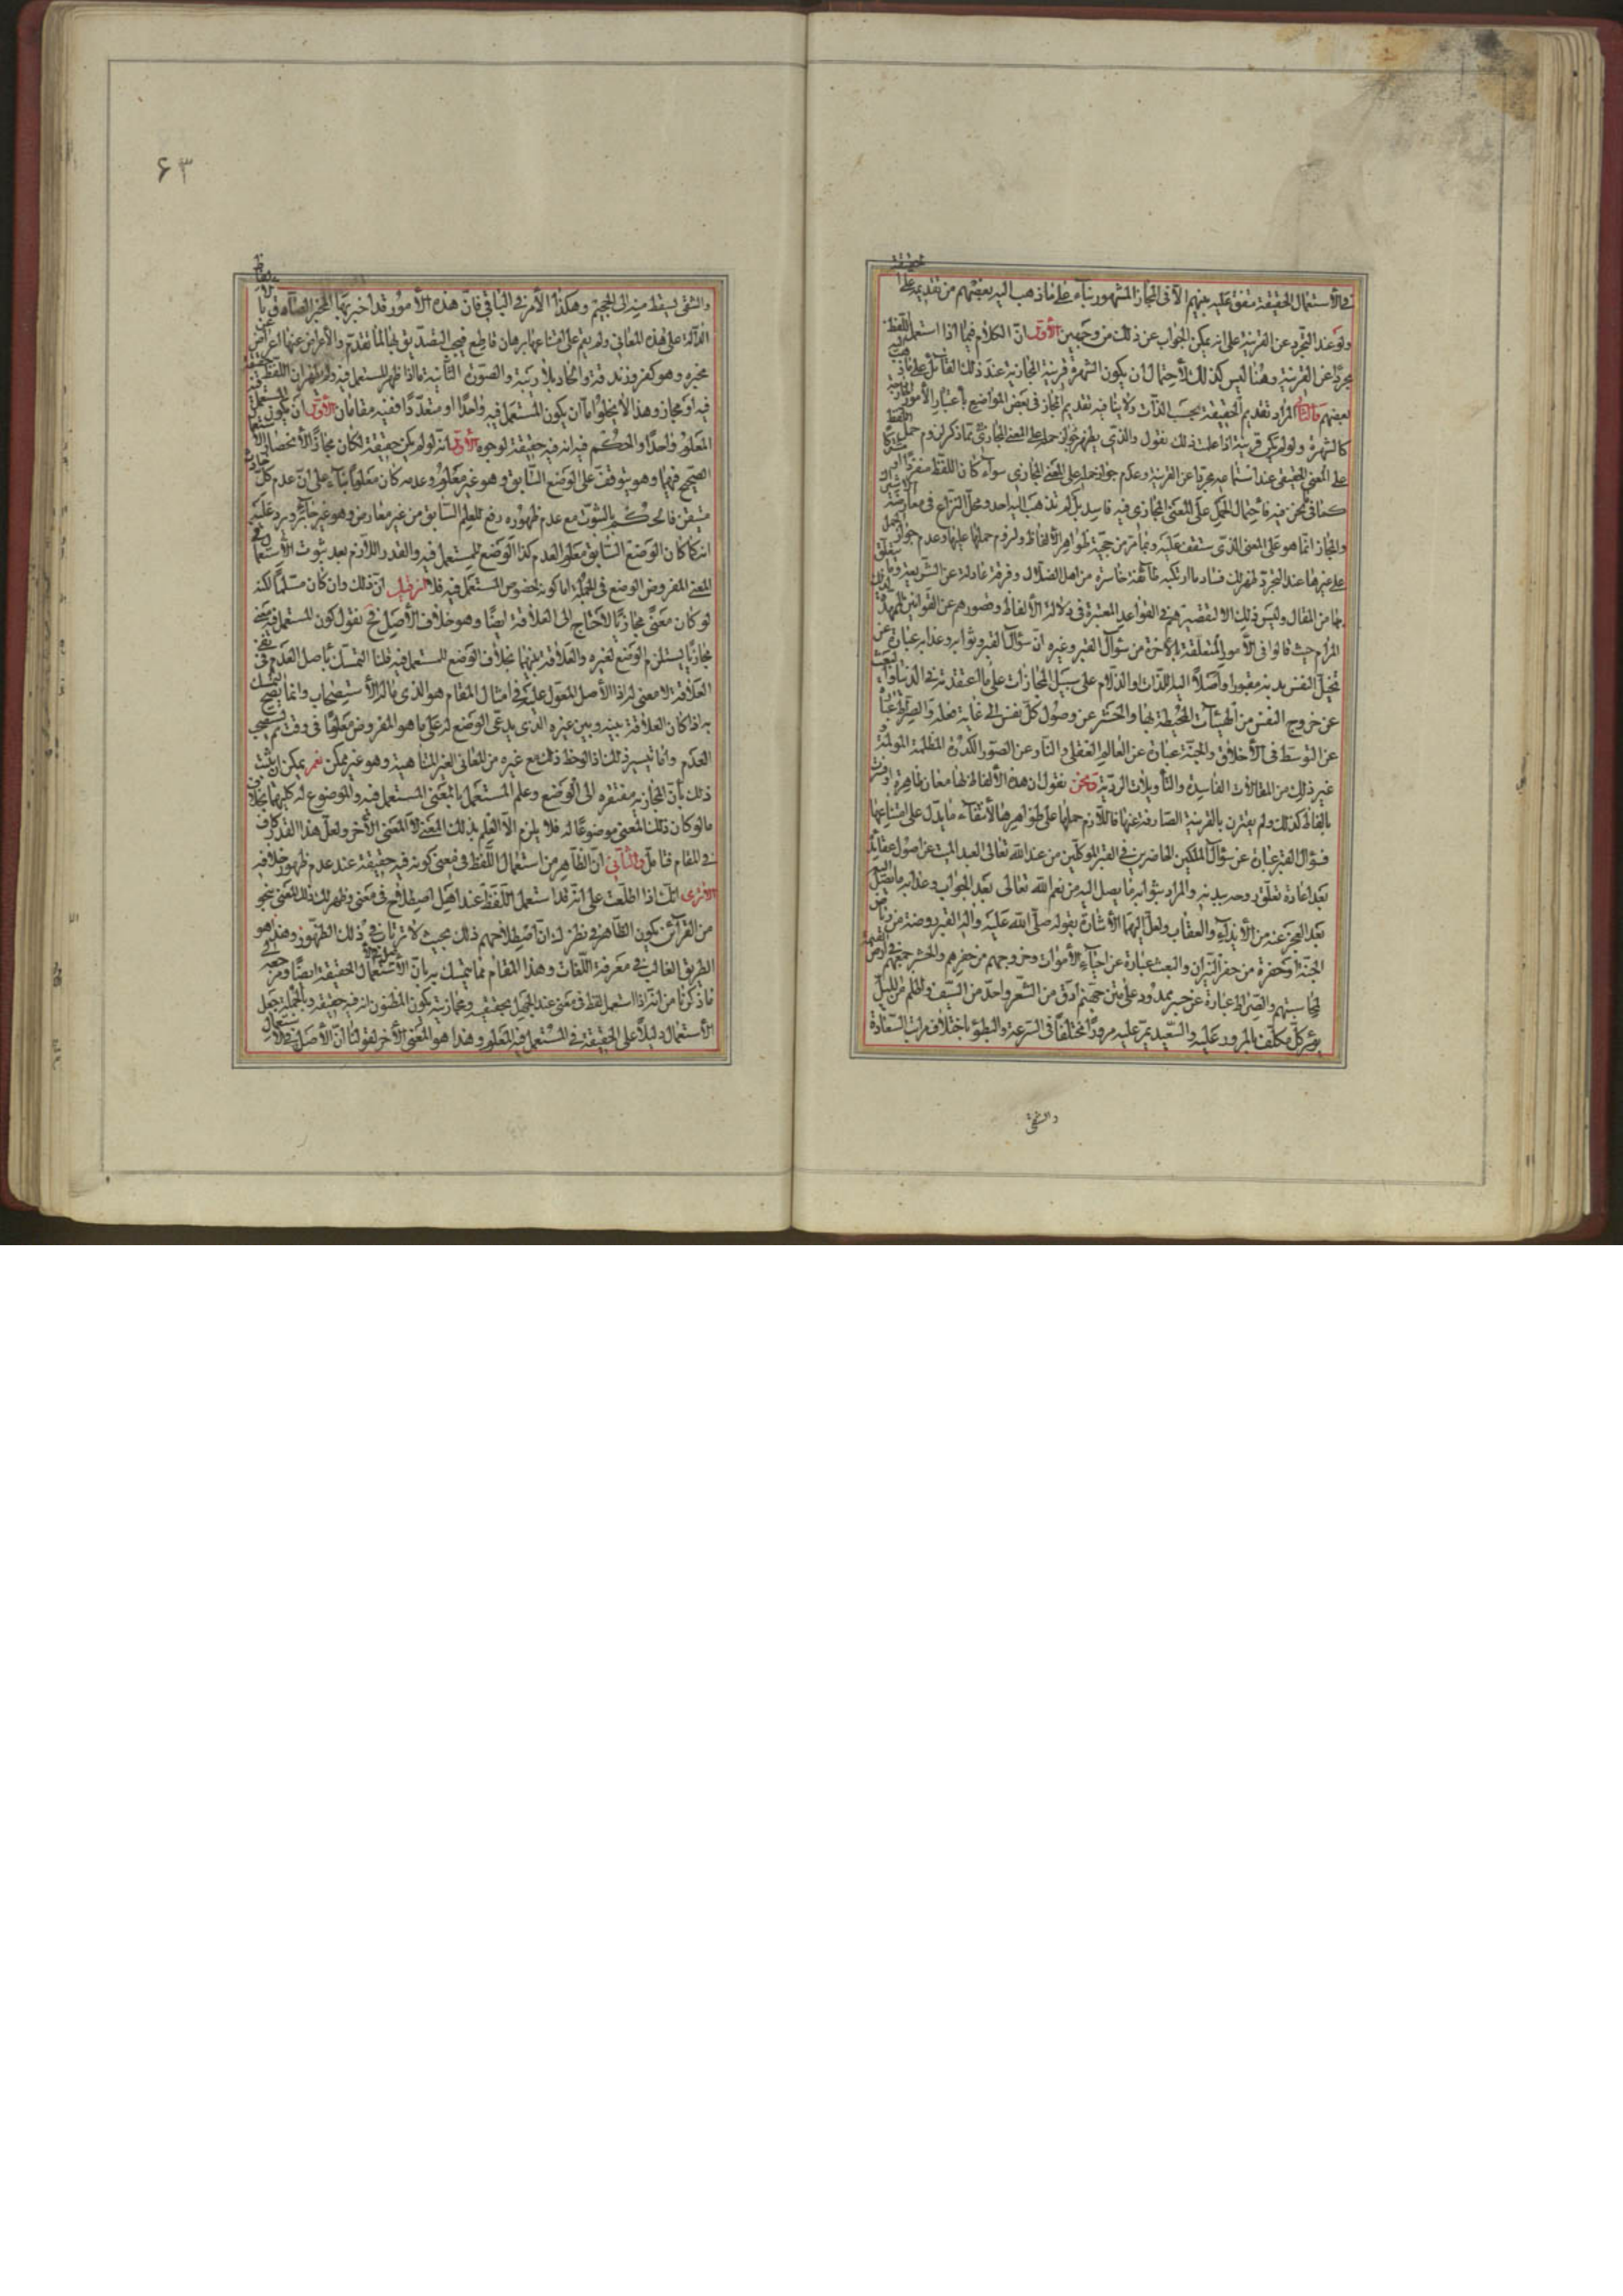 في الأستعمال الحقيقة متفق عليه بينهم الا فى المجاز المشهور بناء على ما ذهب اليه بعضهم من تقديمه على الحقيقة
ولو عند التجرد عن القرينة على انه يمكن الجواب عن ذلك من وجهين الأول ان الكلام فيما اذا استعمل اللفظ
مجردا عن القرينة وهنا ليس كذلك لأحتمال ان يكون الشهرة قرينة المجازية عند ذلك القائل على ما ذهب
بعضهم المراد تقديم الحقيقة بحسب الذات ولا ينافيه تقديم المجاز فى بعض المواضع بأعتبار الأمور
كالشهرة ولو لم يكن قرينة اذا علمت ذلك نقول والذى يظهر جواز حمله على المعنى المجازى مما ذكر لزوم حمل اللفظ
على المعنى الحقيقى عند استعماله مجردا عن القرينة وعدم جواز حمله على المعنى المجازي سواء كان اللفظ منفردا او
كما فى نحن فيه فأحتمال الحمل على المعنى المجازى فيه فاسد بل لم يذهب اليه احد ومحل النزاع فى معارضة
والمجاز انما هو على المعنى الذى ستقف عليه وبما مر من حجية ظواهر الألفاظ ولزوم حملها عليها وعدم جواز
على غيرها عند التجرد ظهر لك فساد ما ارتكبه طائفة خاسرة من اهل الضلال وفرقة عادلة عن الشريعة
من المقال وليس ذلك الا لتقصيرهم فى القواعد المعتبرة فى دلالة الألفاظ وقصورهم عن القوانين الممهدة
المرام حيث قالوا فى الأمور المتعلقة بالأخرة من سؤال القبر وغيره ان سؤال القبر وثوابه وعذابه عبارة عن
تخيل النفس بدنه مقبورا واصلا اليه اللذات والالام على سبيل المجازات على ما اعتقدته فى الدنيا والبعث
عن خروج النفس من الهيئات المحيطة بها والحشر عن وصول كل نفس الى غاية فعله والصراط عبارة
عن التوسط فى الأخلاق والجنة عبارة عن العالم العقلى والنار عن الصور الكدرة المظلمة المولمة
غير ذلك من المقالات الفاسدة والتأويلات الردية ونحن نقول ان هذه الألفاظ لها معان ظاهرة
بألفاظ كذلك ولم يقترن بالقرينة الصارفة عنها فاللازم حملها على ظواهرها لأنتقاء ما يدل على امتناعها
فسؤال القبر عبارة عن سؤال الملكين الحاضرين فى القبر الموكلين من عند الله تعالى العبد الميت عن اصول عقائد
بعد اعادة تعلق روحه ببدنه والمراد بثوابه ما يصل اليه من نعم الله تعالى بعد الجواب وعذابه ما يصل
بعد العجز عنه من الأيذاء والعقاب ولعل اليهما الأشارة بقوله صلى الله عليه واله القبر روضة من رياض
الجنة او حفرة من حفر النيران والبعث عبارة عن احياء الأموات وخروجهم من حفرهم والحشر جمعهم فى ارض القيمة
لمحاسبتهم والصراط عبارة عن جسر ممدود على متن جهنم ادق من الشعر واحد من السيف واظلم من الليل
يؤمر كل مكلف بالمرور عليه والسعيد يمر عليه مرورا مختلفا فى السرعة والبطؤ باختلاف مراتب السعادة
والشقى
۶۳
والشقى يسقط منه الى الجحيم وهكذا الأمر فى الباقى فان هذه الأمور قد اخبر بها المخبر الصادق بالألفاظ
الدالة على هذه المعانى ولم يتم على امتناعها برهان قاطع فيجب التصديق بها لما تقدم والأعراض عنها اعراض عن
مخبره وهو كفر وزندقة والحاد بلا ريبة والصورة الثانية ما اذا ظهر المستعمل فيه ولم يظهر ان اللفظ حقيقة
فيه او مجاز وهذا لا يخلو اما ان يكون المستعمل فيه واحدا او متعددا ففيه مقامان الأول ان يكون المستعمل فيه
المعلوم واحدا والحكم فيه انه فيه حقيقة لوجوه الأول انه لو لم يكن حقيقة لكان مجازا لأنحصار الأستعمال
الصحيح فيهما وهو يتوقف على الوضع السابق وهو غير معلوم وعدمه كان معلوما بناء على ان عدم كل حادث
متيقن فالحكم بالثبوت مع عدم ظهوره رفع للعلم السابق من غير معارض وهو غير جائز ويرد عليه
انه كما كان الوضع السابق معلوم العدم كذا الوضع للمستعمل فيه والقدر اللازم بعد ثبوت الأستعمال فى
المعنى المفروض الوضع فى الجملة واما كونه لخصوص المستعمل فيه فلا فان قيل ان ذلك وان كان مسلما لكنه
لو كان معنى مجازيا لأحتاج الى العلاقة ايضا وهو خلاف الأصل فح نقول كون المستعمل فيه معنى
مجازيا يستلزم الوضع لغيره والعلاقة بينهما بخلاف الوضع للمستعمل فيه قلنا التمسك بأصل العدم فى نفى
العلاقة لا معنى له اذ الأصل المعول عليه فى امثال المقام هو الذى ماله الأستصحاب وانما يصح التمسك
به اذا كان العلاقة بينه وبين غيره الذى يدعى الوضع له على ما هو المفروض معلوما فى وقت ثم يستصحب
العدم وانما تيسير ذلك اذا لوحظ ذلك مع غيره من المعانى الغير المتناهية وهو غير ممكن نعم يمكن ان يثبت
ذلك بأن المجازية مفتقرة الى الوضع وعلم المستعمل بالمعنى المستعمل فيه والموضوع له كليهما بخلاف
ما لو كان ذلك المعنى موضوعا له فلا يلزم الا العلم بذلك المعنى لا المعنى الأخر ولعل هذا القدر كاف
فى المقام فتأمل والثانى ان الظاهر من استعمال اللفظ فى معنى كونه فيه حقيقة عند عدم ظهور خلافه
الا ترى انك اذا اطلعت على انه قد استعمل اللفظ عند اهل اصطلاح فى معنى وظهر لك ذلك المعنى بنحو
من القرائن يكون الظاهر فى نظرك ان اصطلاحهم ذلك بحيث لا ترتاب فى ذلك الظهور وهذا هو
الطريق الغالب فى معرفة اللغات وهذا المقام مما يتمسك به بان الأصل فى الأستعمال الحقيقة ايضا ومرجعه الى
ما ذكرنا من انه اذا استعمل لفظ فى معنى عند الجهل بحقيقيته ومجازيته يكون المظنون انه فيه حقيقة وبالجملة جعل
الأستعمال دليلا على الحقيقة فى المستعمل فيه المعلوم وهذا هو المعنى الأخر لقولنا ان الأصل فى الأستعمال